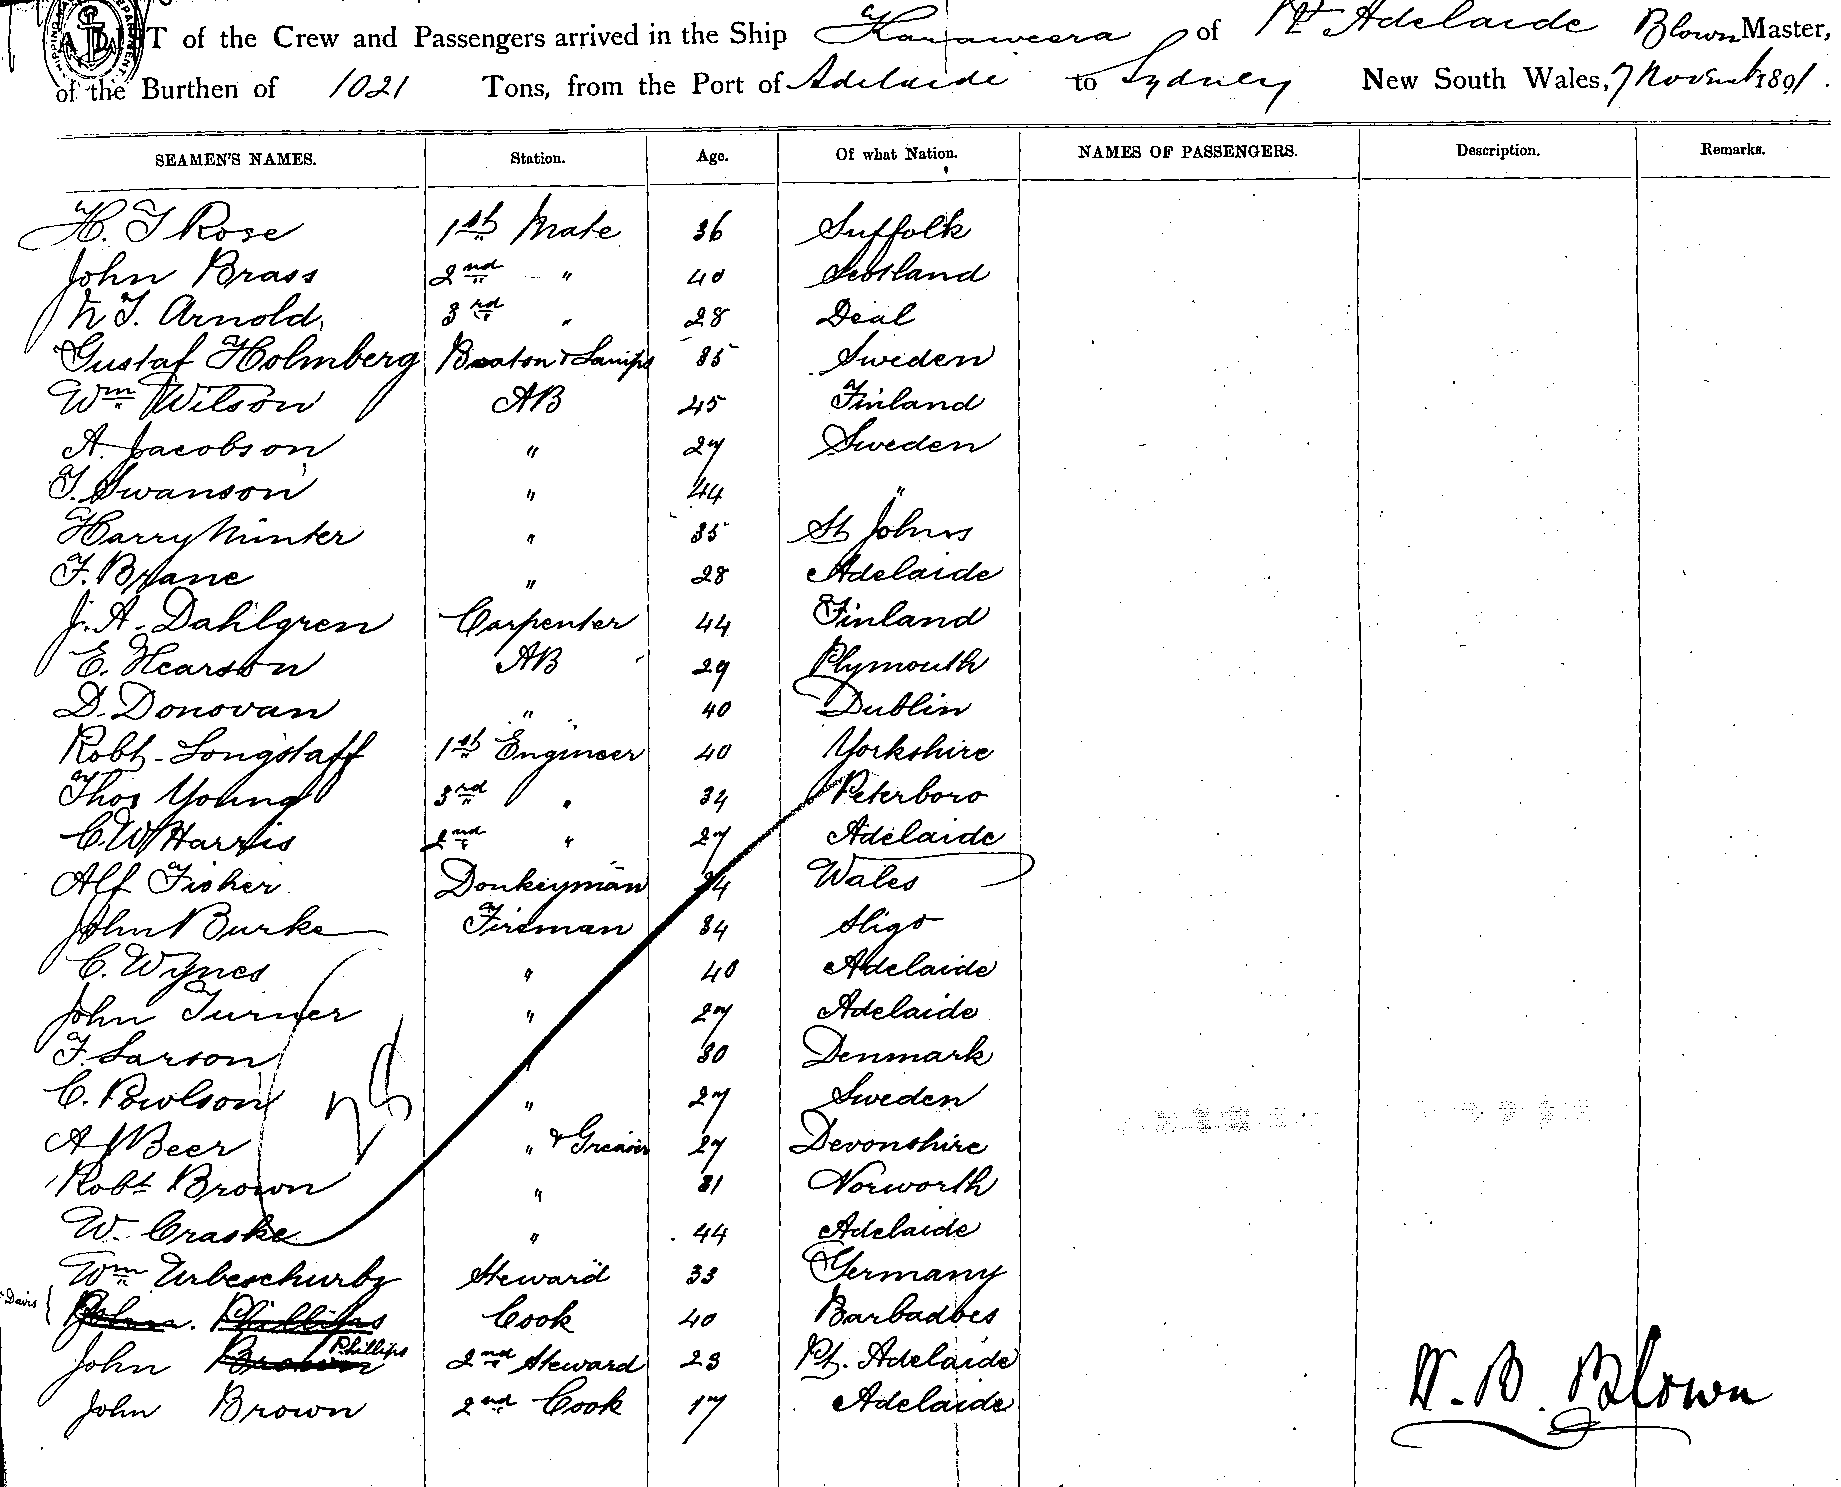 A LIST of the Crew and Passengers arrived in the Ship Kanaweera of Pt Adelaide Blown Master,
of the Burthen of 1021 Tons, from the Port of Adelaide to Sydney New South Wales, 7 Novemb 1891.
SEAMEN'S NAMES. Station. Age. Of what Nation. NAMES OF PASSENGERS. Description. Remarks.
H. J Rose 1st Mate 36 Suffolk
John Brass 2nd " 40 Scotland
J. Arnold 3rd " 28 Deal
Gustaf Holmberg & Lamps 35 Sweden
Wm Wilson AB 45 Finland
A. Jacobson " 27 Sweden
J. Swanson " 44 "
Harry Hunter " 35 St Johns
F. Brane " 28 Adelaide
J. A. Dahlgren Carpenter 44 Finland
E. Hearson AB 29 Plymouth
D. Donovan " 40 Dublin
Robt. Longstaff 1st Engineer 40 Yorkshire
Thos Young 3rd " 34 Peterboro
C. W Harris 2nd " 27 Adelaide
Alf Fisher Donkeyman 24 Wales
John Burke Fireman 34 Sligo
C. Wynes " 40 Adelaide
John Turner " 27 Adelaide
F. Larson " 30 Denmark
C. Powlson " 27 Sweden
A J Beer " & Greaser 27 Devonshire
Robt Brown " 31 Norworth
W. Craske " 44 Adelaide
Wm Urbeschurby Steward 33 Germany
Davis John. Phillips Cook 40 Barbadoes
John Brown Phillips 2nd Steward 23 Pt. Adelaide
John Brown 2nd Cook 17 Adelaide
W. B. Blown